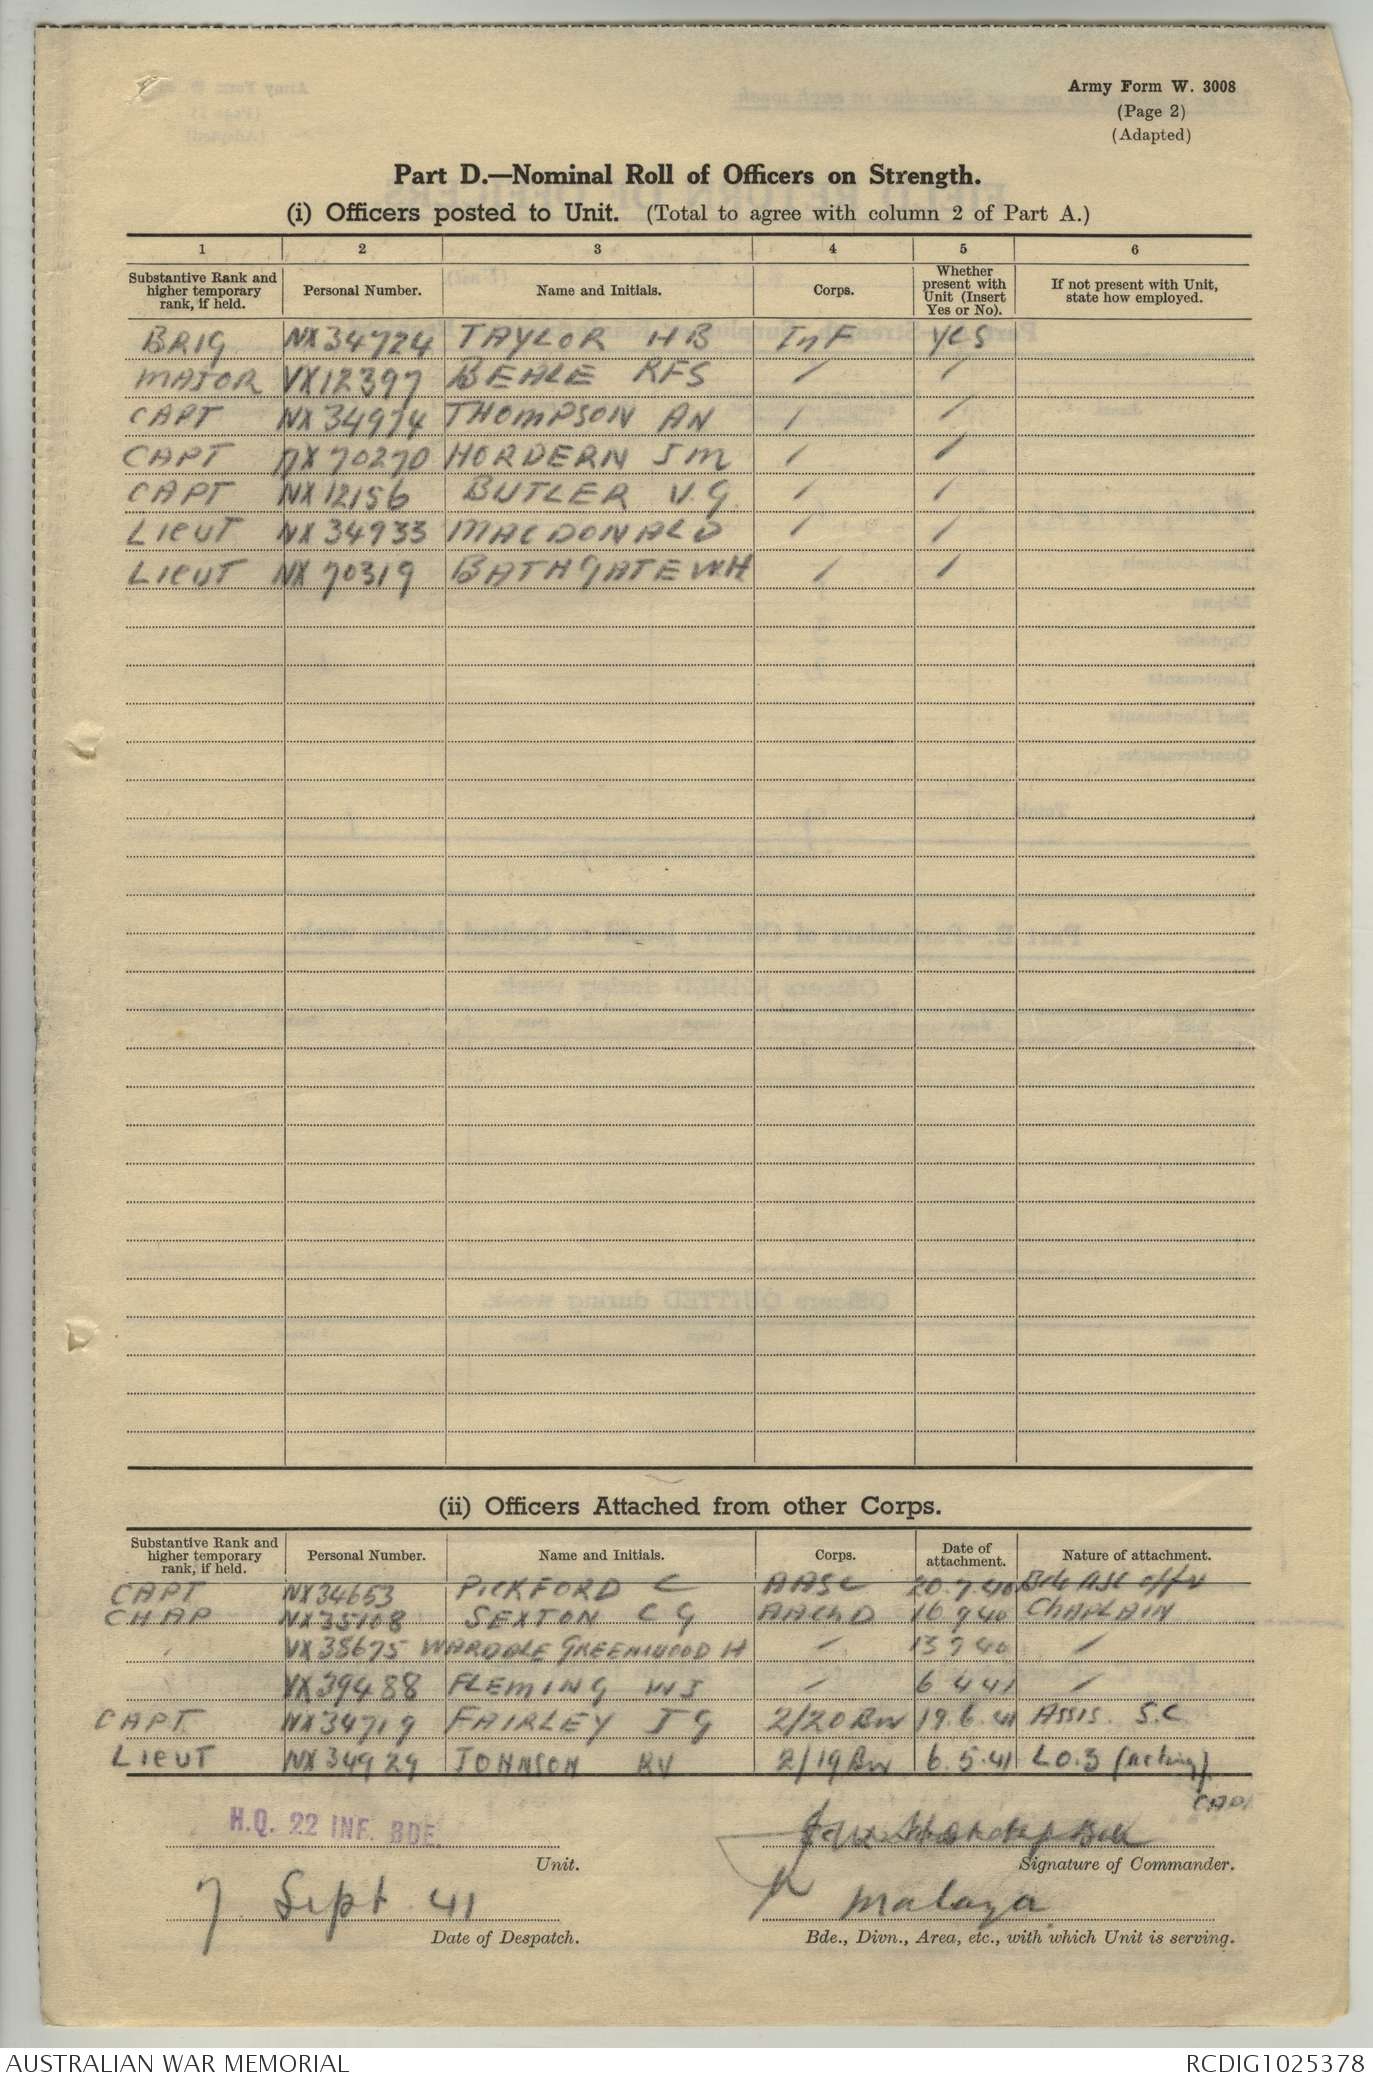 Army Form W. 3008
(Page 2)
(Adapted)
Part D.—Nominal Roll of Officers on Strength.
(i) Officers posted to Unit. (Total to agree with column 2 of Part A.)
1 2 3 4 5 6
Substantive Rank and higher temporary rank, if held. Personal Number. Name and Initials. Corps. Whether present with Unit (Insert Yes or No). If not present with Unit, state how employed.
BRIG NX34724 TAYLOR HB Inf Yes
MAJOR VX12397 BEALE RFS / /
CAPT NX34974 THOMPSON AN / /
CAPT NX70270 HORDERN JM / /
CAPT NX12156 BUTLER V.G. / /
LIEUT NX34933 MACDONALD / /
LIEUT NX70319 BATHGATE WH / /
(ii) Officers Attached from other Corps.
Substantive Rank and higher temporary rank, if held. Personal Number. Name and Initials. Corps. Date of attachment. Nature of attachment.
CAPT NX34653 PICKFORD C AASC 20.7.40 Bde ASC offr
CHAP NX35108 SEXTON C G AAChD 16 9 40 CHAPLAIN
VX38675 WARDALE GREENWOOD H / 13 7 40 /
VX39488 FLEMING WJ / 6 4 41 /
CAPT NX34719 FAIRLEY J G 2/20 Bn 19.6.41 Assis. S.C
LIEUT NX34929 JOHNSON RV 2/19 Bn 6.5.41 L O.3 (acting)
CAPT
H.Q. 22 INF. BDE.
Unit. Signature of Commander.
7 Sept 41 Malaya
Date of Despatch. Bde., Divn., Area, etc., with which Unit is serving.
AUSTRALIAN WAR MEMORIAL RCDIG1025378